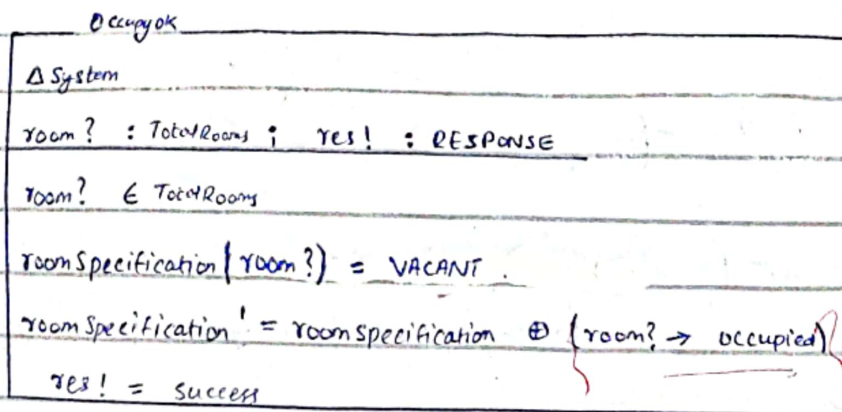 Occupyok
Δ System
room? : TotalRooms ; res! : RESPONSE
room? ∈ TotalRooms
roomSpecification(room?) = VACANT.
roomSpecification' = roomSpecification ⊕ {room? → occupied}
res! = success